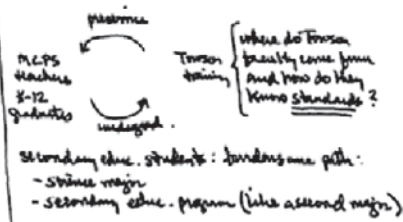 preservice
MCPS
teachers
K-12
graduates
undergrad.
Towson
training
where do Towson
faculty come from
and how do they
know standards?
secondary educ. students: same path:
- science major
- secondary educ. program (like a second major)